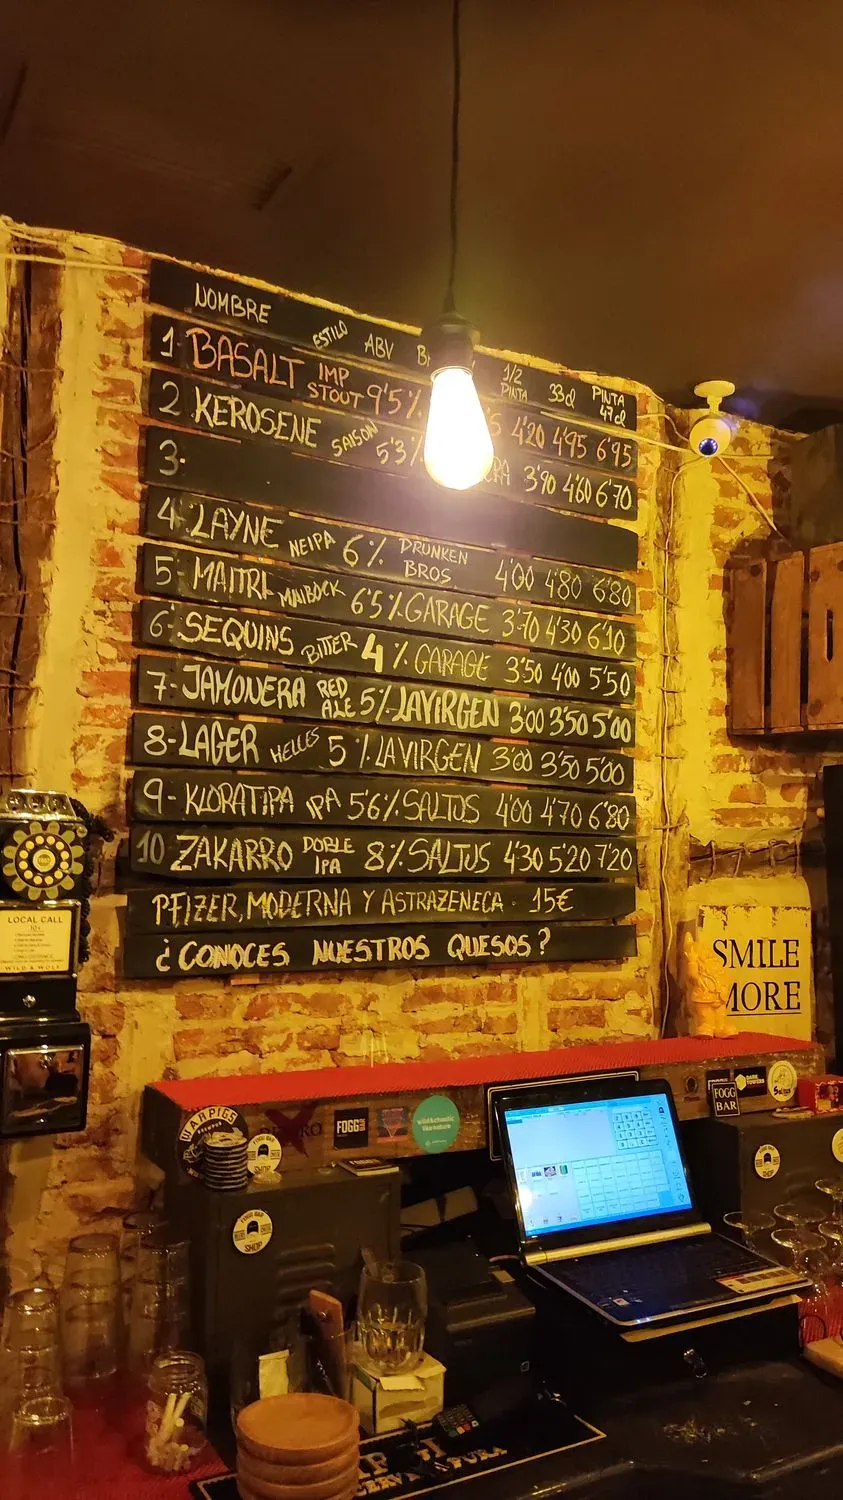 NOMBRE ESTILO ABV 1/2 PINTA 33cl PINTA 47cl
1- BASALT IMP STOUT 9'5% 4'20 4'95 6'95
2 KEROSENE SAISON 5'3% 3'90 4'60 6'70
3-
4- LAYNE NEIPA 6% DRUNKEN BROS 4'00 4'80 6'80
5- MAITRI MAIBOCK 6'5% GARAGE 3'70 4'30 6'10
6- SEQUINS BITTER 4% GARAGE 3'50 4'00 5'50
7- JAMONERA RED ALE 5% LAVIRGEN 3'00 3'50 5'00
8- LAGER HELLES 5% LAVIRGEN 3'00 3'50 5'00
9- KLORATIPA IPA 5'6% SALTUS 4'00 4'70 6'80
10 ZAKARRO DOBLE IPA 8% SALTUS 4'30 5'20 7'20
PFIZER, MODERNA Y ASTRAZENECA - 15€
¿CONOCES NUESTROS QUESOS?
LOCAL CALL
10¢
WILD & WOLF
SMILE
MORE
WARPIGS
FOGG
FOGG
BAR
DARK
TOWERS
wild&chaotic
like nature
FOGG BAR
SHOP